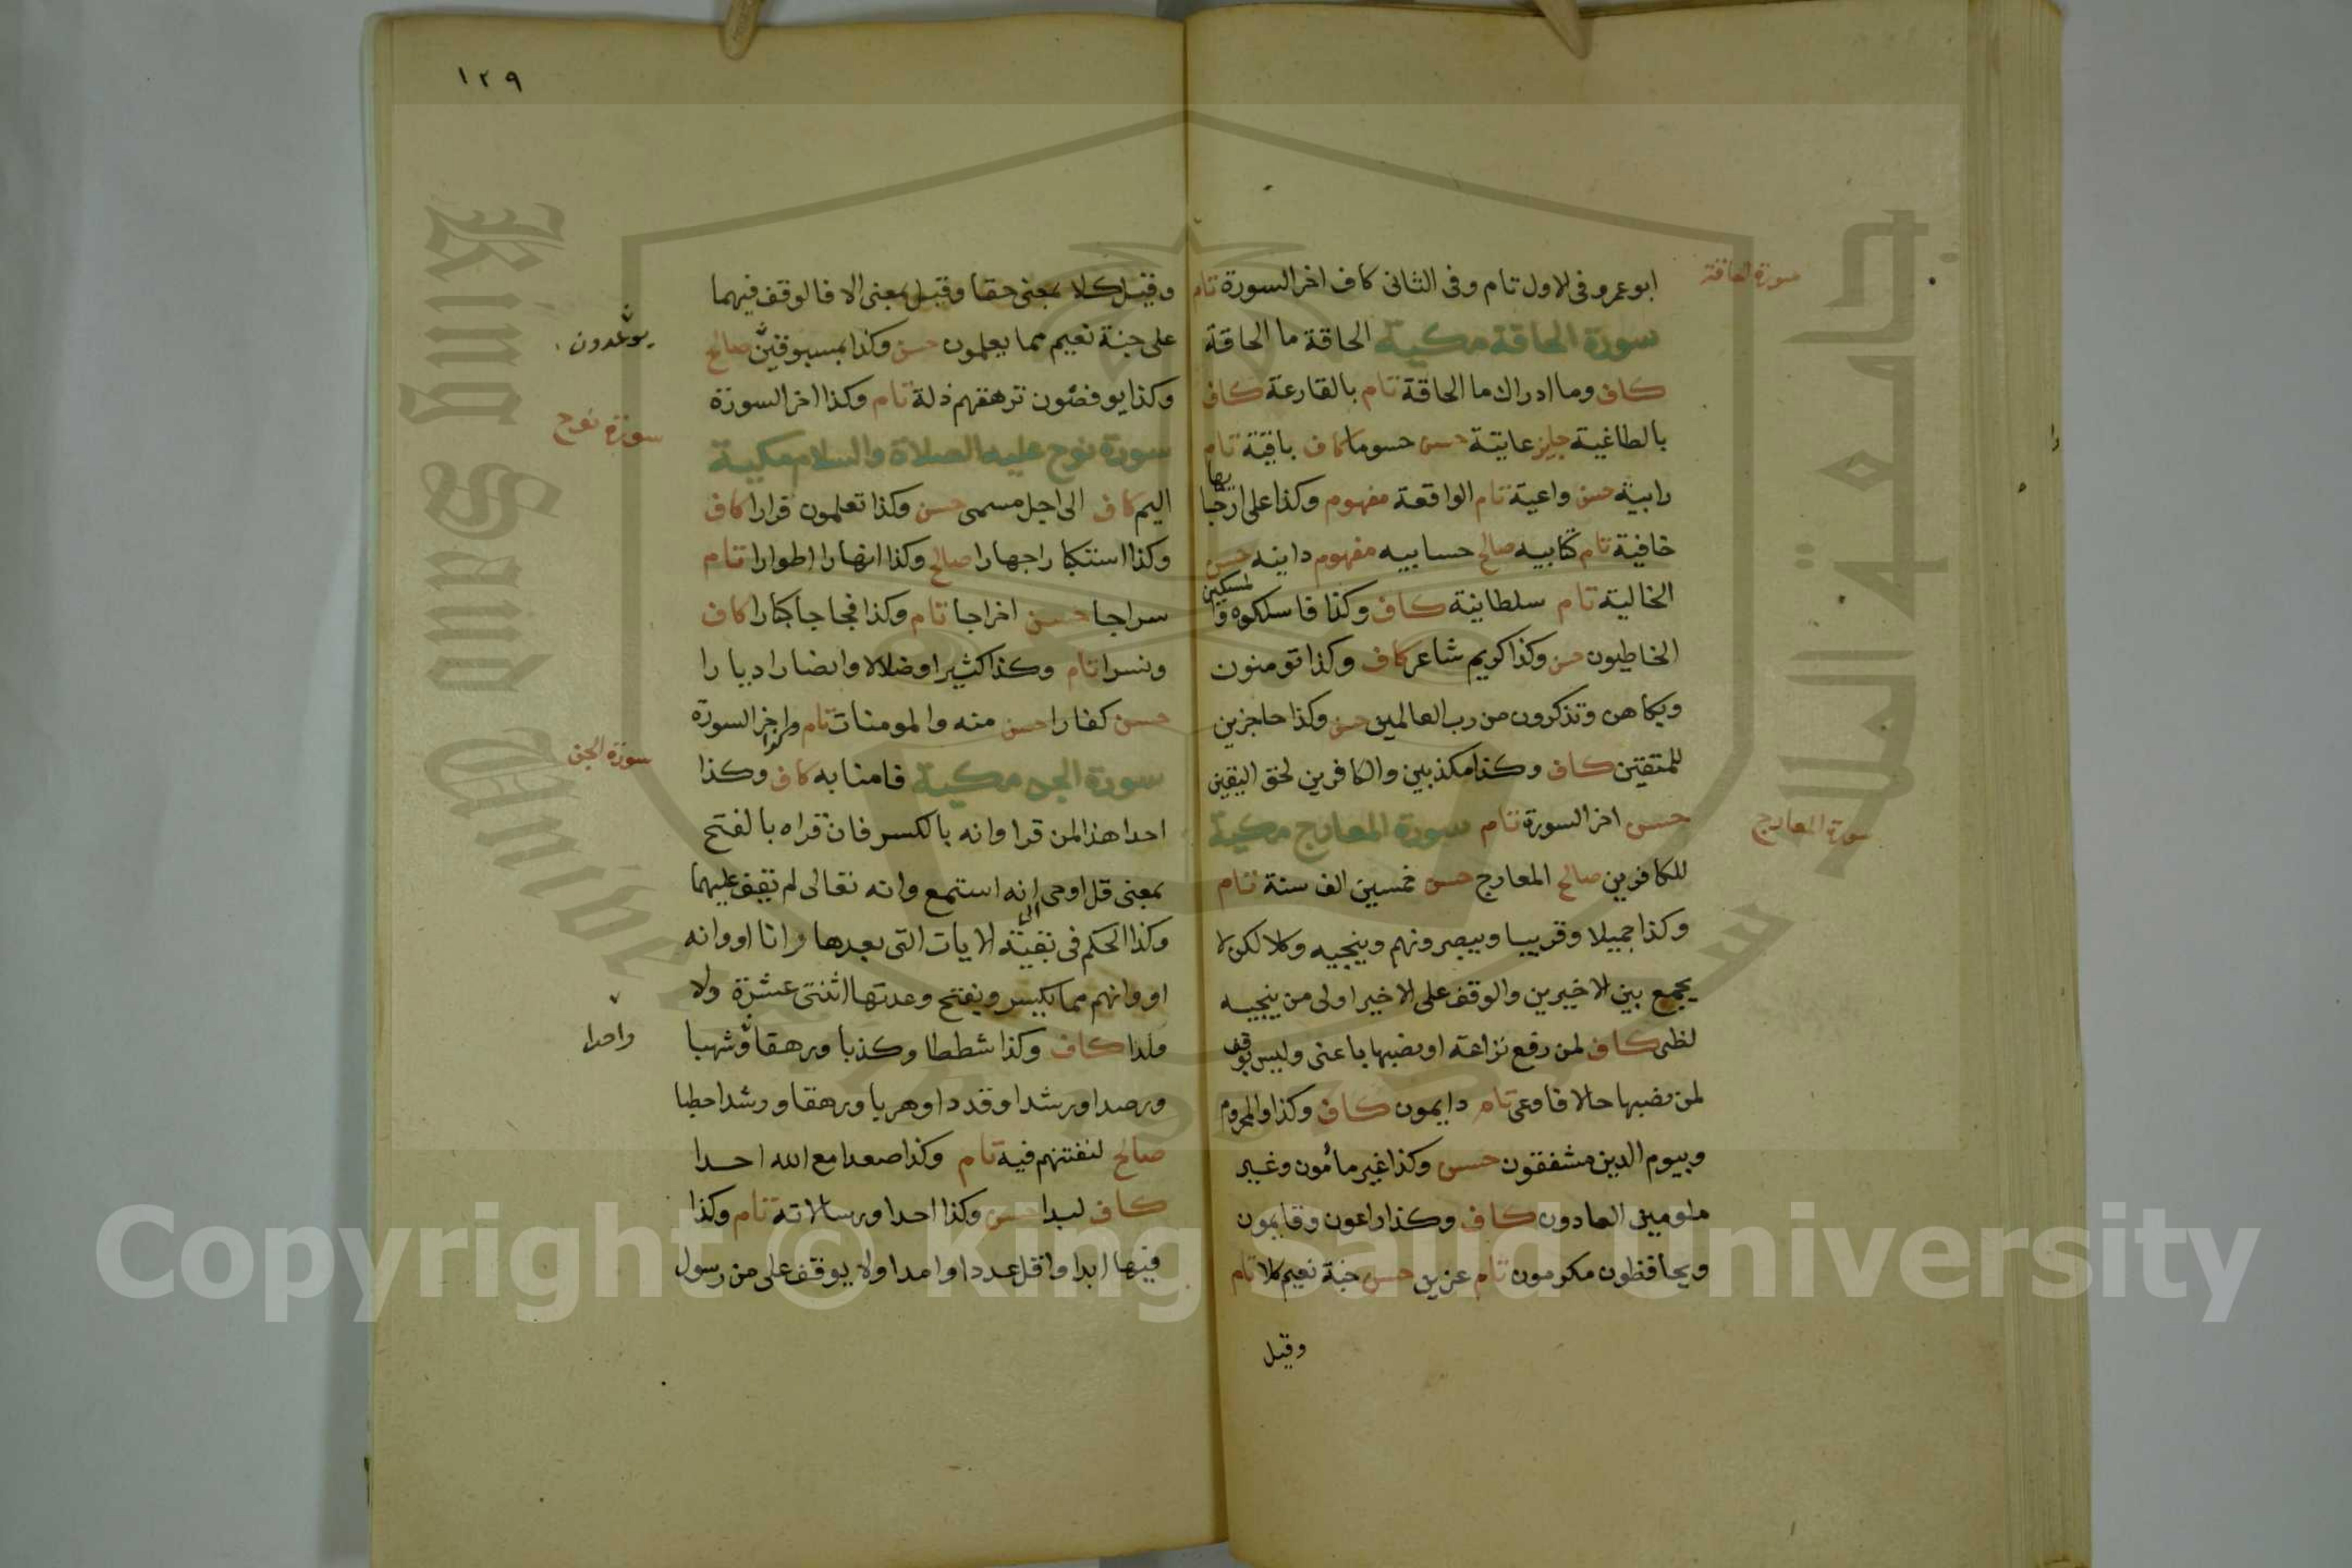 سورة الحاقة
ابو عمرو فى الاول تام وفى الثانى كاف اخر السورة تام
سورة الحاقة مكية الحاقة ما الحاقة
كاف وما ادراك ما الحاقة تام بالقارعة كاف
بالطاغية جايز عاتية حسن حسوما كاف باقية تام
رابية حسن واعية تام الواقعة مفهوم وكذا على ارجايها
خافية تام كتابيه صالح حسابيه مفهوم دانية حسن
الخالية تام سلطانية كاف وكذا فاسلكوه والمسكين
الخاطيون حسن وكذا كريم شاعر كاف وكذا تومنون
وبكاهن وتذكرون من رب العالمين حسن وكذا حاجزين
للمتقين كاف وكذا مكذبين والكافرين لحق اليقين
حسن اخر السورة تام سورة المعارج مكية
سورة المعارج
للكافرين صالح المعارج حسن خمسين الف سنة تام
وكذا جميلا وقريبا ويبصرونهم وينجيه وكلا لكن لا
يجمع بين الاخيرين والوقف على الاخير اولى من ينجيه
لظى كاف لمن رفع نزاعة او نصبها باعنى وليس بوقف
لمن نصبها حالا فاوعى تام دايمون كاف وكذا والمحروم
وبيوم الدين مشفقون حسن وكذا غير مأمون وغير
ملومين العادون كاف وكذا راعون وقايمون
ويحافظون مكرمون تام عزين حسن جنة نعيم كلا تام
وقيل
١٢٩
وقيل كلا بمعنى حقا وقيل بمعنى الا فالوقف فيهما
على جنة نعيم مما يعلمون حسن وكذا بمسبوقين صالح
يوعدون
وكذا يوفضون ترهقهم ذلة تام وكذا اخر السورة
سورة نوح
سورة نوح عليه الصلاة والسلام مكية
اليم كاف الى اجل مسمى حسن وكذا تعلمون قرارا كاف
وكذا استكبارا جهارا صالح وكذا انهارا اطوارا تام
سراجا حسن اخراجا تام وكذا فجاجا كبارا كاف
ونسرا تام وكذا كثيرا وضلالا وانصارا ديارا
حسن كفارا حسن منه والمومنات تام وكذا اخر السورة
سورة الجن
سورة الجن مكية فامنا به كاف وكذا
احدا هذا لمن قرا وانه بالكسر فان قراه بالفتح
بمعنى قل اوحى الى انه استمع وانه تعالى لم يقف عليهما
وكذا الحكم فى بقية الايات التى بعدها وانا او وانه
او وانهم مما يكسر ويفتح وعدتها اثنتى عشرة ولا
ولدا كاف وكذا شططا وكذبا ورهقا وشهبا
واحدا
ورصدا ورشدا وقددا وهربا ورهقا ورشدا حطبا
صالح لنفتنهم فيه تام وكذا صعدا مع الله احدا
كاف لبدا حسن وكذا احدا ورسالاته تام وكذا
فيها ابدا واقل عددا وامدا ولا يوقف على من رسول
King Saud University
Copyright © King Saud University